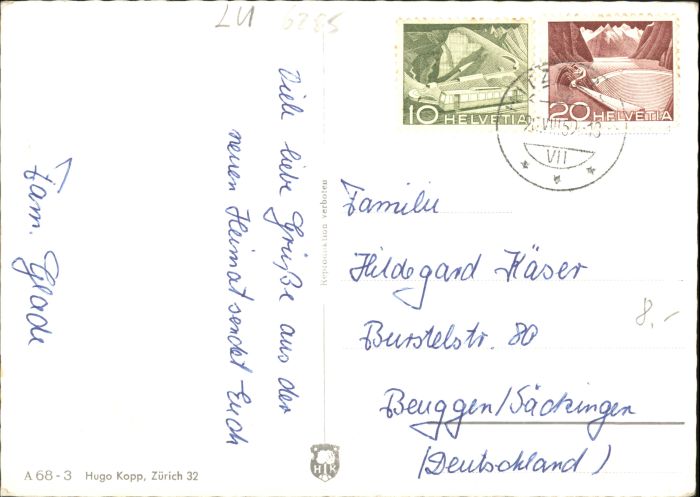 LU 6289
Viele liebe Grüße aus der
neuen Heimat sendet Euch
Fam. Glade
A 68 - 3 Hugo Kopp, Zürich 32
Reproduktion verboten
HK
10 HELVETIA
20 HELVETIA
VII
Familie
Hildegard Käser
Burstelstr. 80
Beuggen/Säckingen
(Deutschland)
8.-